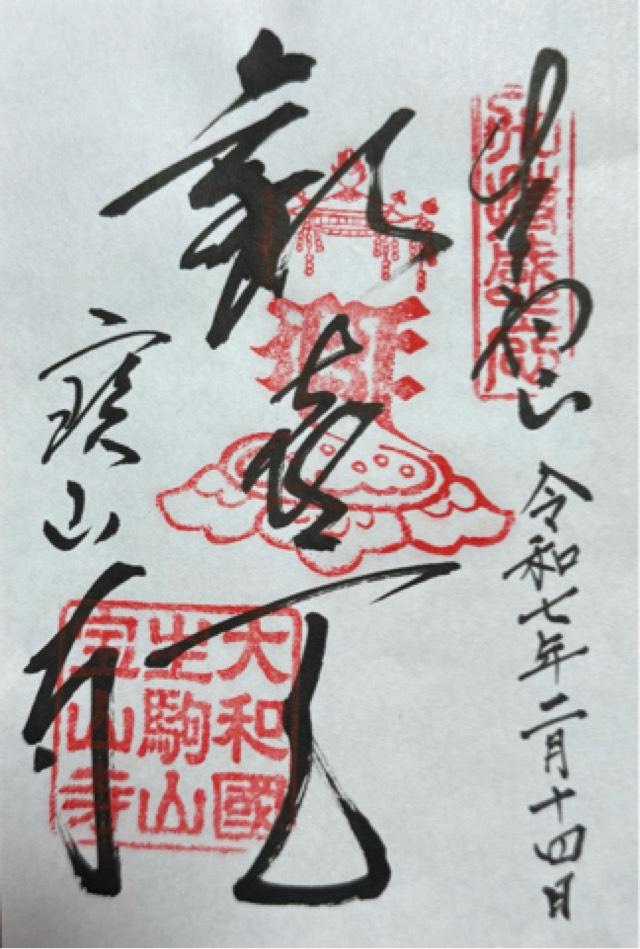 生駒山
令和七年二月十四日
歓喜天
寳山寺
大和國
生駒山
宝山寺